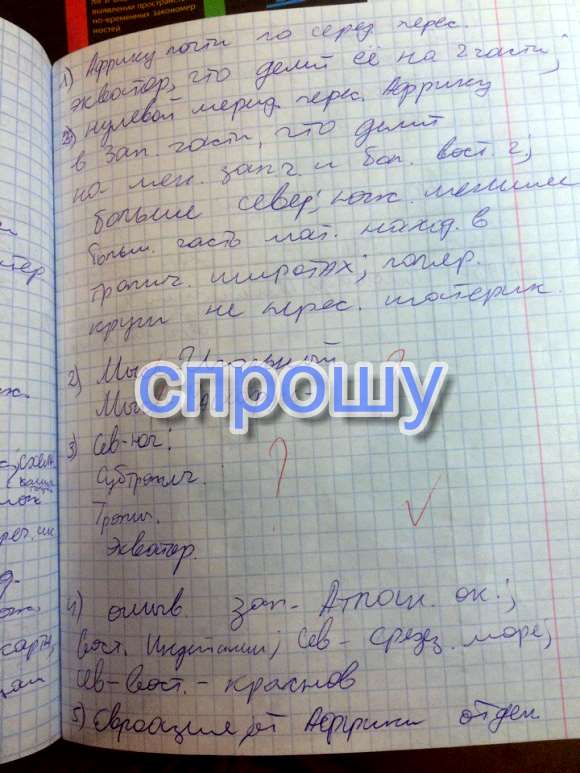 ле и
выявлении пространст
но-временных закономер
ностей
1) Африку почти по серед. перес.
экватор, что делит её на 2 части;
2) нулевой мерид. перес. Африку
в зап. части, что делит
на мен. зап. ч. и бол. вост. ч;
больше север, юж. меньше
больш. часть мат. наход. в
тропич. широтах; поляр.
круги не перес. материк.
2) Мыс
Мы
спрошу
3) Сев-юг:
Субтропич.
Тропич.
Экватор.
?
4) омыв. зап- Атлан. ок.;
Вост. Индийский; Сев- средез. море;
Сев-Вост.- красное
5) Евразия от Африки отдел